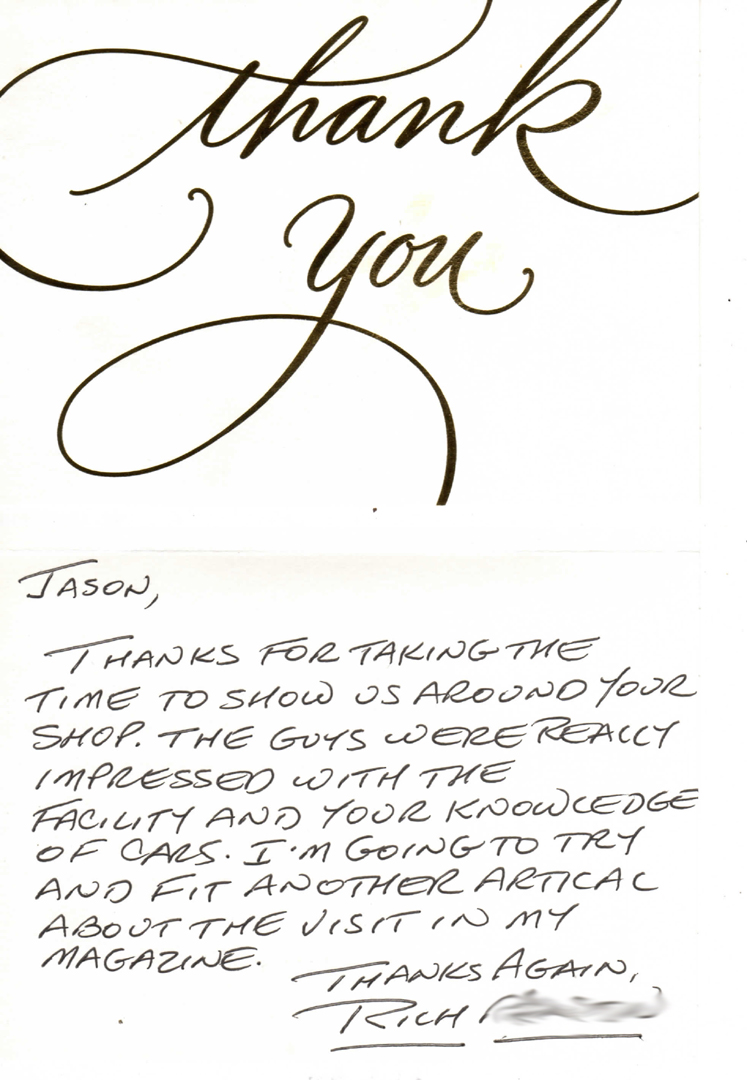 thank
you
JASON,
THANKS FOR TAKING THE
TIME TO SHOW US AROUND YOUR
SHOP. THE GUYS WERE REALLY
IMPRESSED WITH THE
FACILITY AND YOUR KNOWLEDGE
OF CARS. I'M GOING TO TRY
AND FIT ANOTHER ARTICAL
ABOUT THE VISIT IN MY
MAGAZINE.
THANKS AGAIN,
RICH